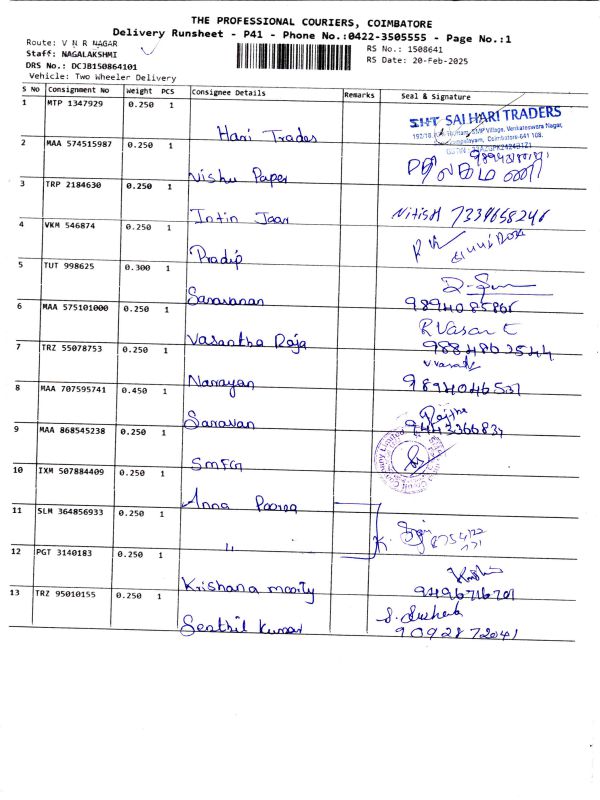 THE PROFESSIONAL COURIERS, COIMBATORE
Delivery Runsheet - P41 - Phone No.:0422-3505555 - Page No.:1
Route: V N R NAGAR
Staff: NAGALAKSHMI
DRS No.: DCJB150864101
Vehicle: Two Wheeler Delivery
RS No.: 1508641
RS Date: 20-Feb-2025
S No Consignment No Weight PCS Consignee Details Remarks Seal & Signature
1 MTP 1347929 0.250 1 Hari Trades
SAI HARI TRADERS
2 MAA 574515987 0.250 1 Vishu Paper
3 TRP 2184630 0.250 1 Intin Jaar Nitish 7339658246
4 VKM 546874 0.250 1 Pradip
5 TUT 998625 0.300 1 Saravanan
9894085866
6 MAA 575101000 0.250 1 Vasantha Raja R Vasant
9884862544
7 TRZ 55078753 0.250 1 Narayan
9894046531
8 MAA 707595741 0.450 1 Saravan
9443366834
9 MAA 868545238 0.250 1 SMFG
10 IXM 507884409 0.250 1 Anna Poorna
11 SLM 364856933 0.250 1 "
12 PGT 3140183 0.250 1 Krishana moorty
9496716701
13 TRZ 95010155 0.250 1 Senthil Kumar
9092872041